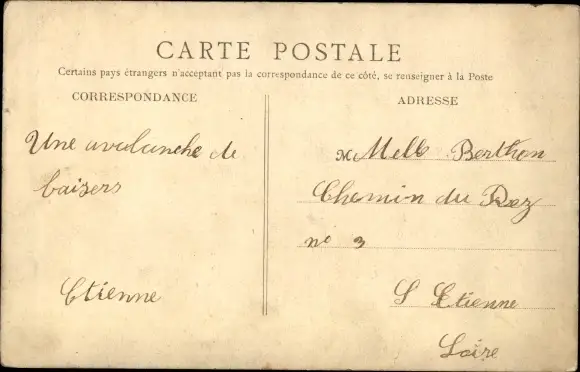 CARTE POSTALE
Certains pays étrangers n'acceptant pas la correspondance de ce côté, se renseigner à la Poste
CORRESPONDANCE
Une avalanche de
baisers
Etienne
ADRESSE
M Melle Berthon
Chemin du Rez
nº 3
S Etienne
Loire